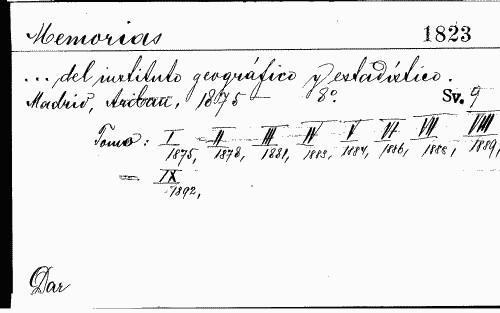 Memorias 1823
... del instituto geográfico y estadístico.
Madrid, Aribau, 1875 — 8º. Sv. 9
Tomo: I II III IV V VI VII VIII
1875, 1878, 1881, 1883, 1884, 1886, 1888, 1889,
— IX
1892,
Dar